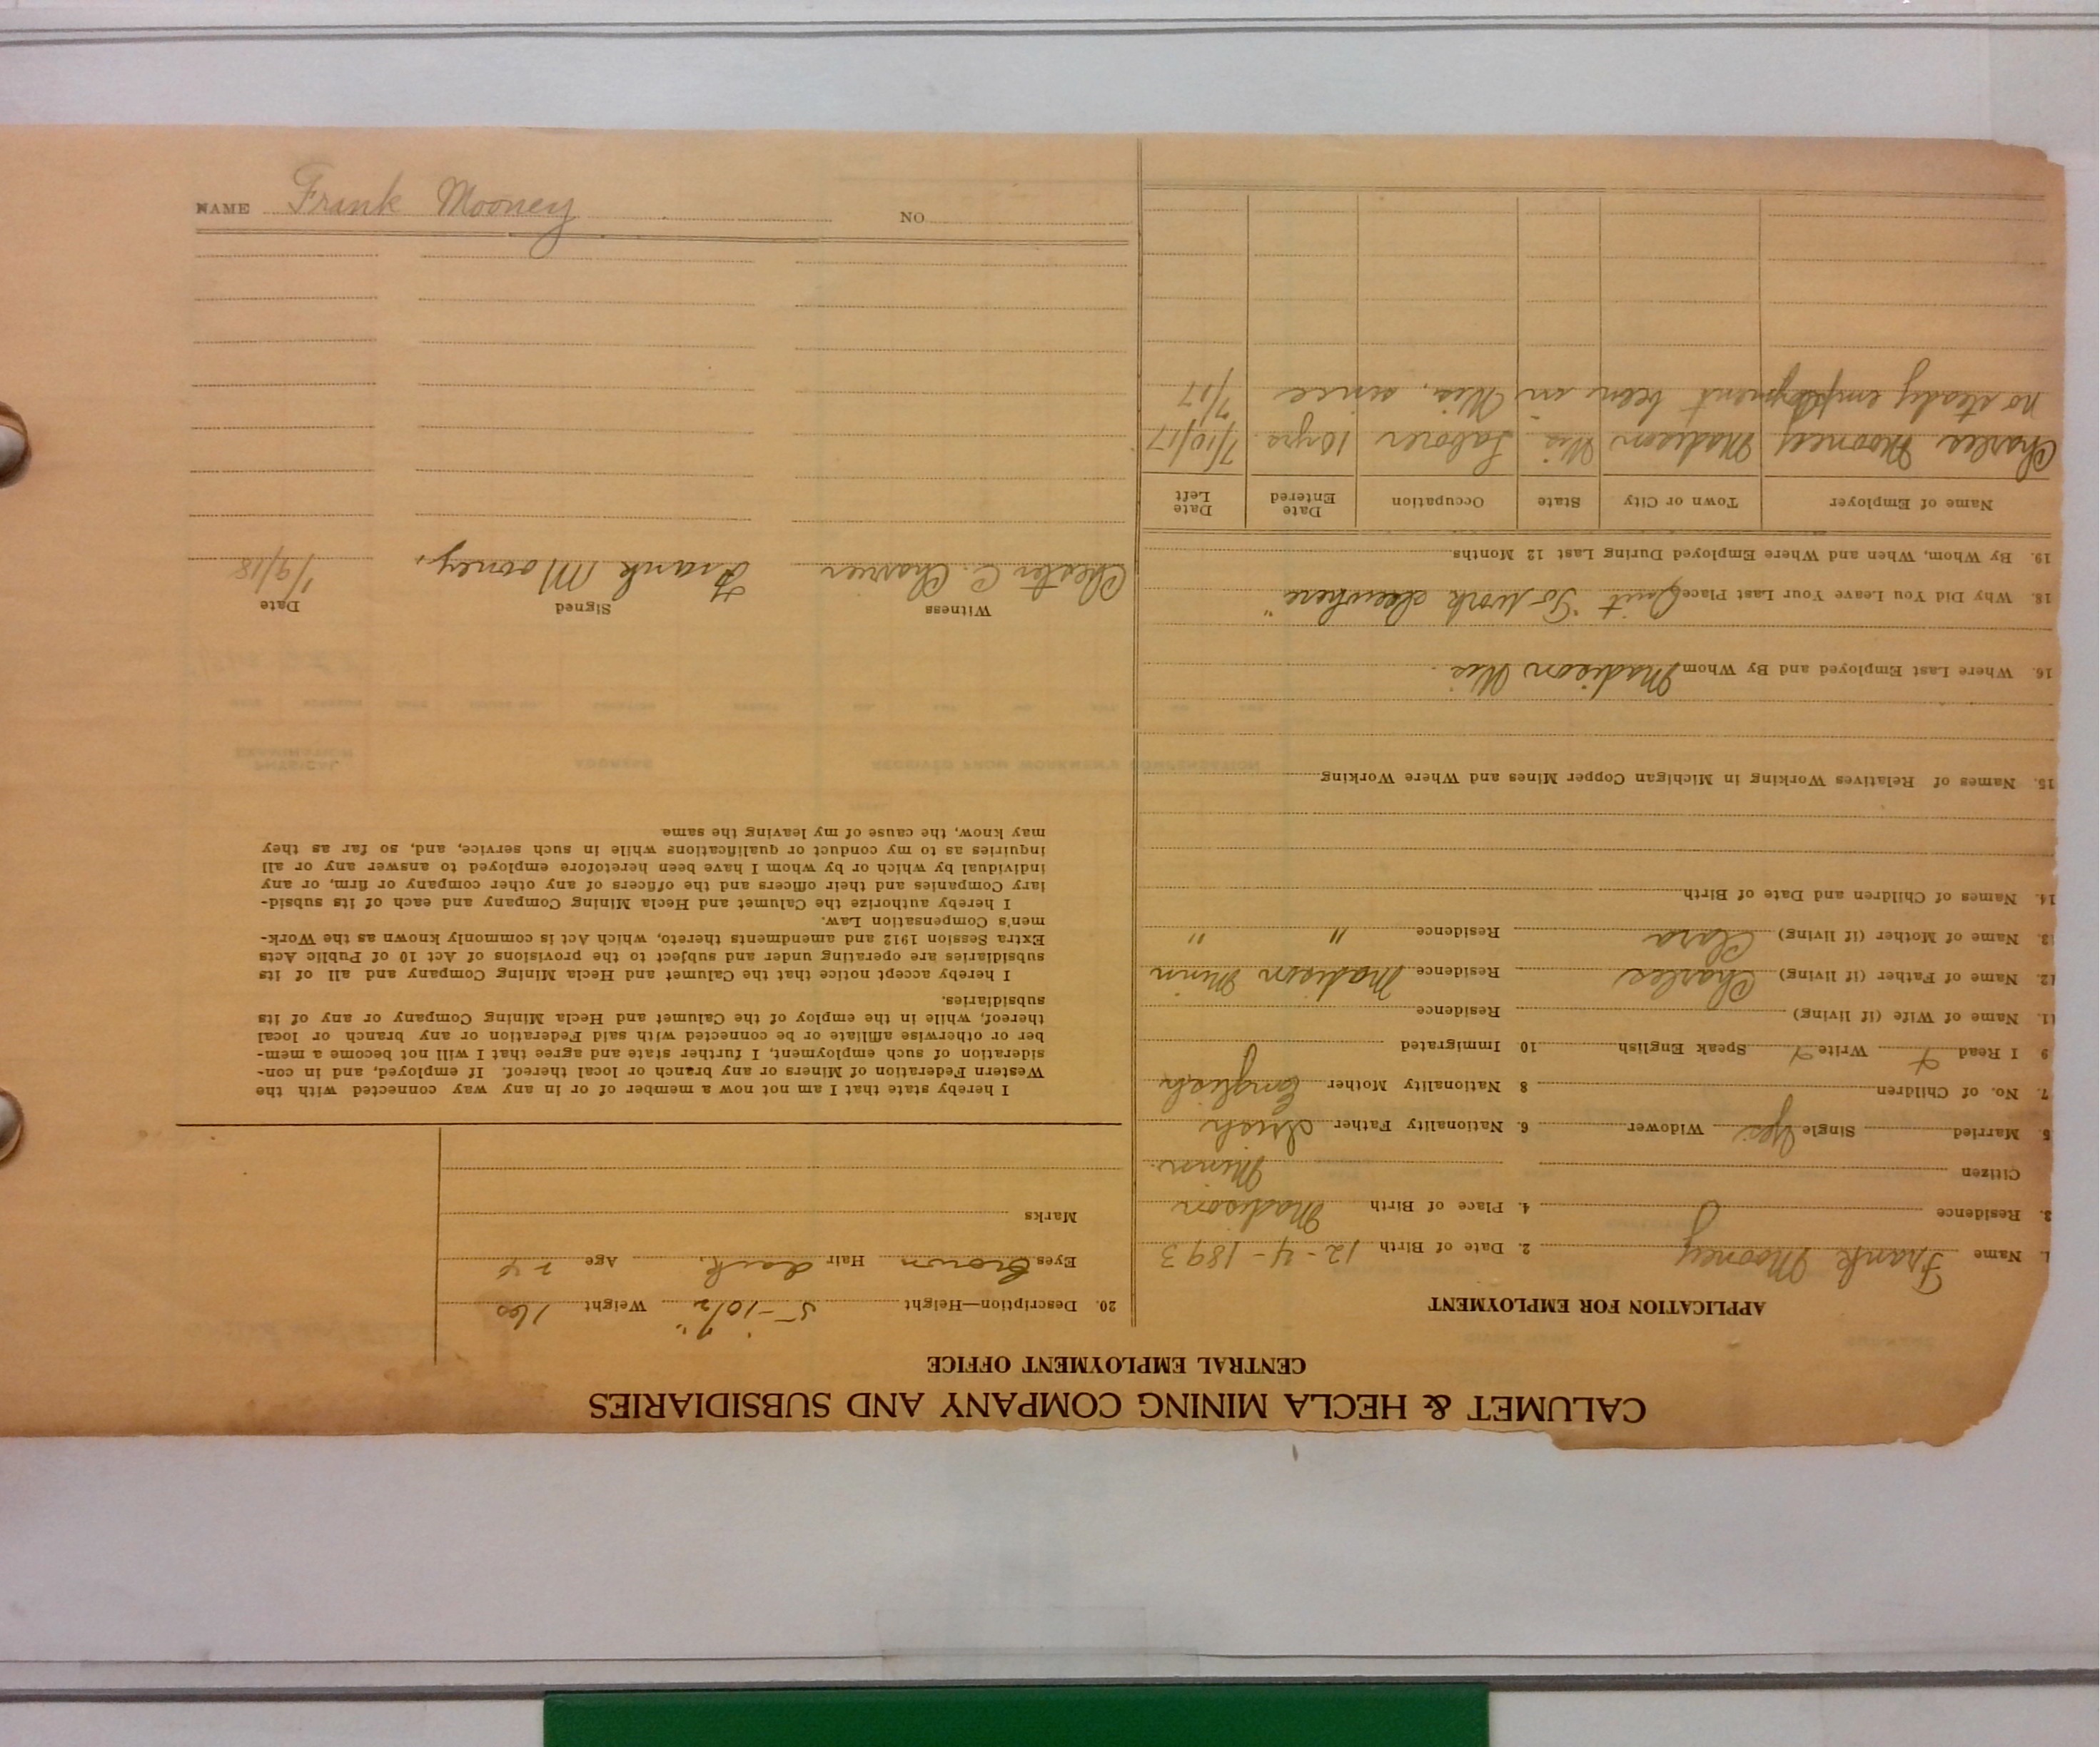 CALUMET & HECLA MINING COMPANY AND SUBSIDIARIES
CENTRAL EMPLOYMENT OFFICE
APPLICATION FOR EMPLOYMENT
1. Name Frank Mooney 2. Date of Birth 12-4-1893
3. Residence 4. Place of Birth Madison
Citizen Minn.
5. Married Single Yes Widower 6. Nationality Father Irish
7. No. of Children 8 Nationality Mother English
9 I Read Write Speak English 10 Immigrated
11. Name of Wife (if living) Residence
12. Name of Father (if living) Charles Residence Madison Minn
13. Name of Mother (if living) Clara Residence " "
14. Names of Children and Date of Birth
15. Names of Relatives Working in Michigan Copper Mines and Where Working
16. Where Last Employed and By Whom Madison Wis.
18. Why Did You Leave Your Last Place Quit "To work elsewhere"
19. By Whom, When and Where Employed During Last 12 Months
Name of Employer Town or City State Occupation Date Entered Date Left
Charles Mooney Madison Wis Laborer 10 yrs. 7/10/17
no steady employment been in Wis, since 7/17
20. Description—Height 5'-10 1/2" Weight 160
Eyes Brown Hair dark. Age 24
Marks
I hereby state that I am not now a member of or in any way connected with the
Western Federation of Miners or any branch or local thereof. If employed, and in con-
sideration of such employment, I further state and agree that I will not become a mem-
ber or otherwise affiliate or be connected with said Federation or any branch or local
thereof, while in the employ of the Calumet and Hecla Mining Company or any of its
subsidiaries.
I hereby accept notice that the Calumet and Hecla Mining Company and all of its
subsidiaries are operating under and subject to the provisions of Act 10 of Public Acts
Extra Session 1912 and amendments thereto, which Act is commonly known as the Work-
men's Compensation Law.
I hereby authorize the Calumet and Hecla Mining Company and each of its subsid-
iary Companies and their officers and the officers of any other company or firm, or any
individual by which or by whom I have been heretofore employed to answer any or all
inquiries as to my conduct or qualifications while in such service, and, so far as they
may know, the cause of my leaving the same
Witness Signed Date
Chester C. Frank Mooney. 1/9/18
NAME Frank Mooney NO